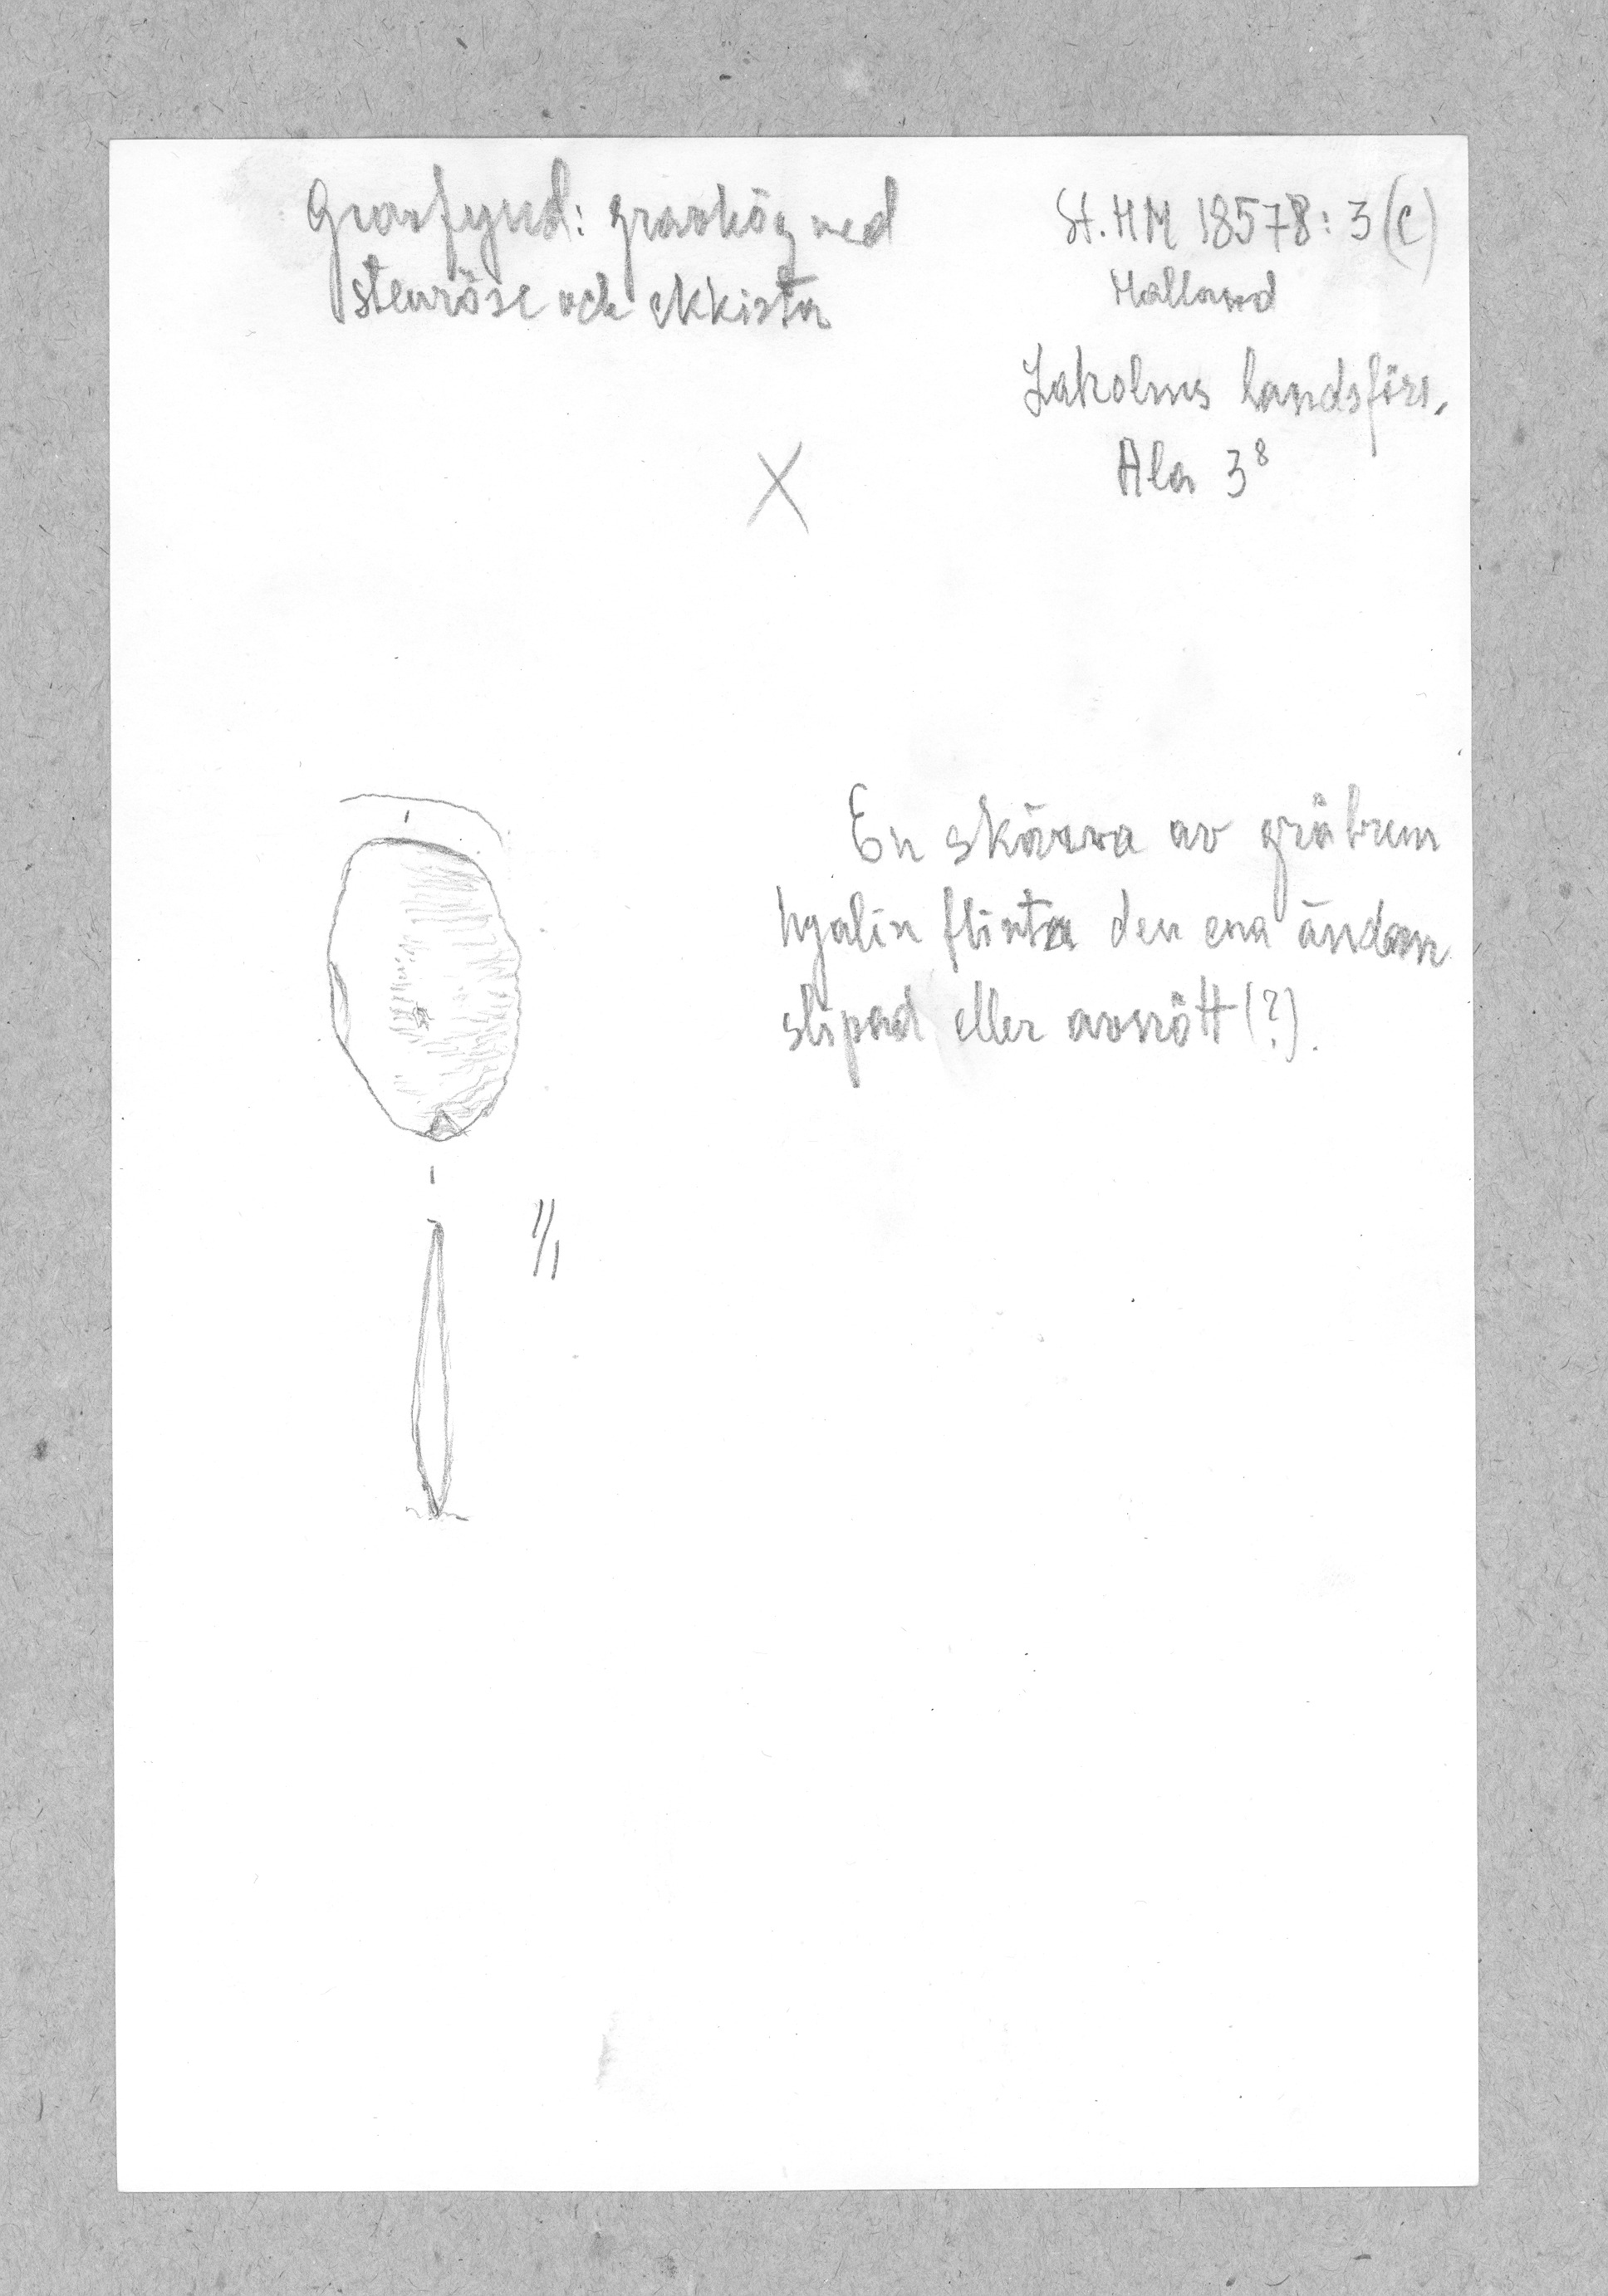 Gravfynd: gravhög med
stenröse och ekkista
St. HM 18578:3 (c)
Halland
Laholms landsförs.
Ala 3⁸
X
En skärva av gråbrun
hyalin flinta den ena ändan
slipad eller avnött (?).
1/1